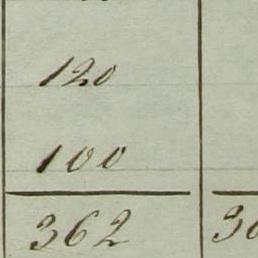 120
100
362